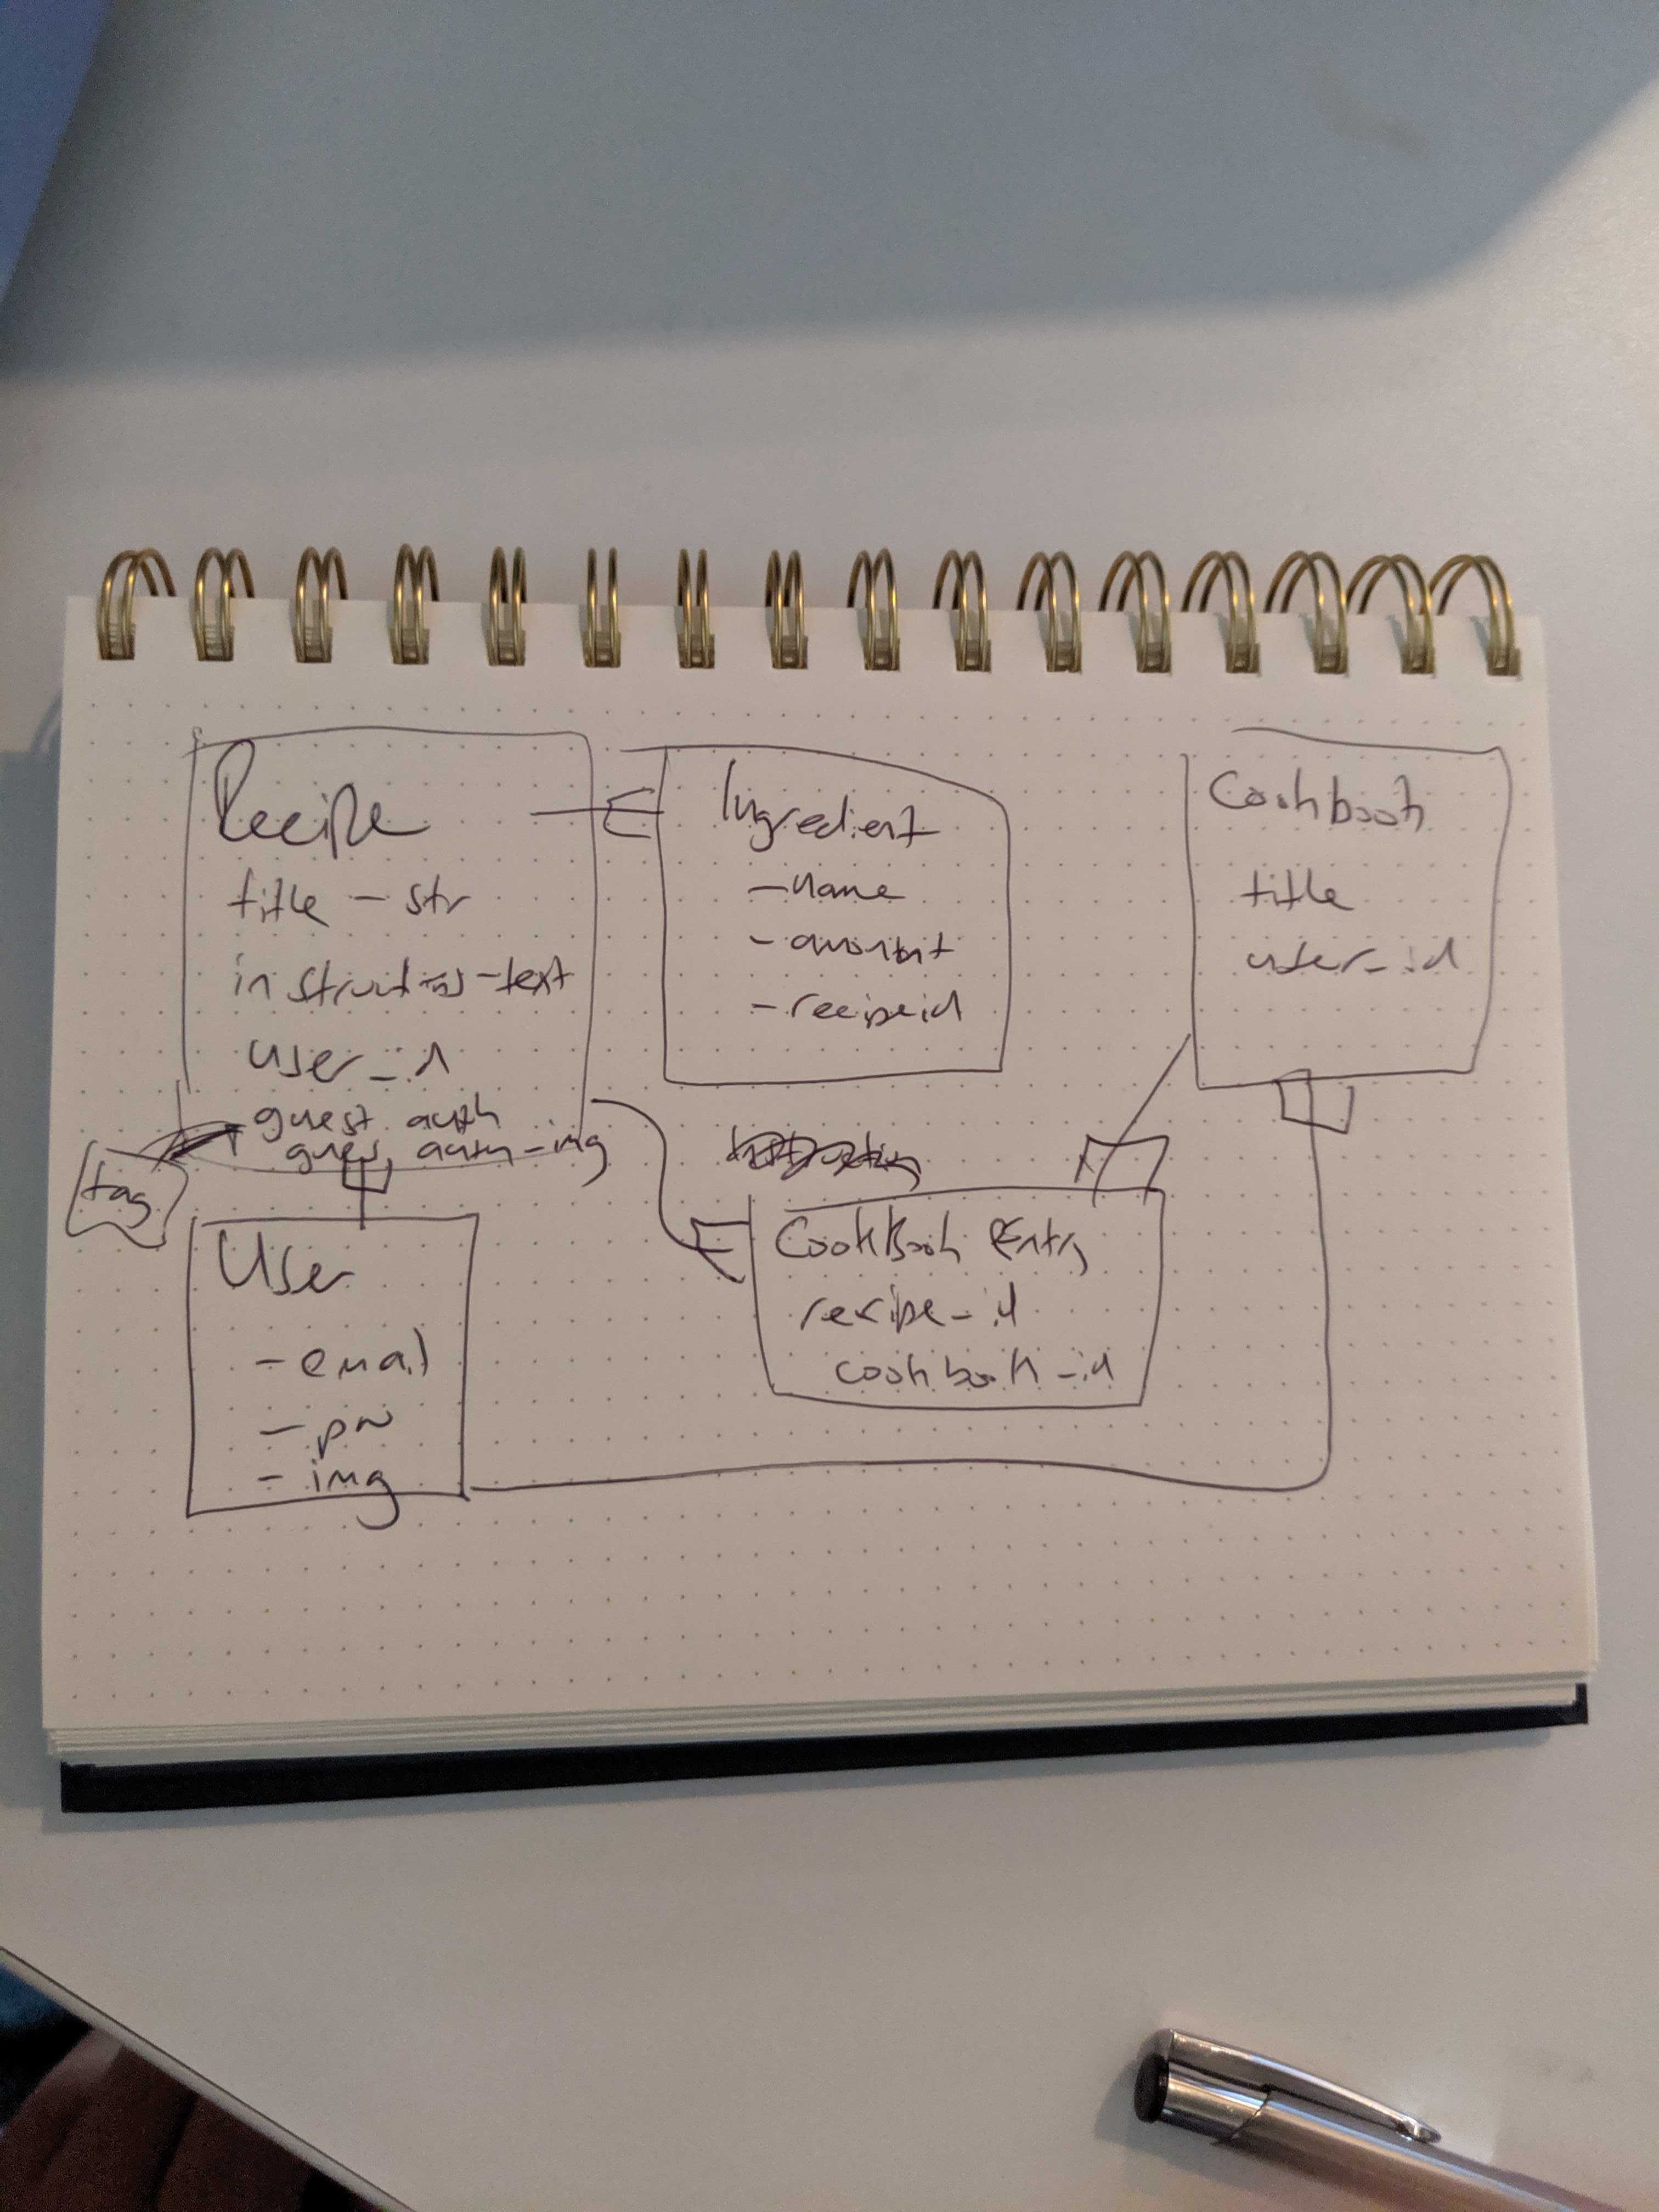 Recipe
title - str
instructions - text
user_id
guest auth
guest auth-img
tag
Ingredient
- name
- amount
- recipeid
Cookbook
title
user_id
User
- email
- pw
- img
CookBook Entry
recipe_id
cookbook_id